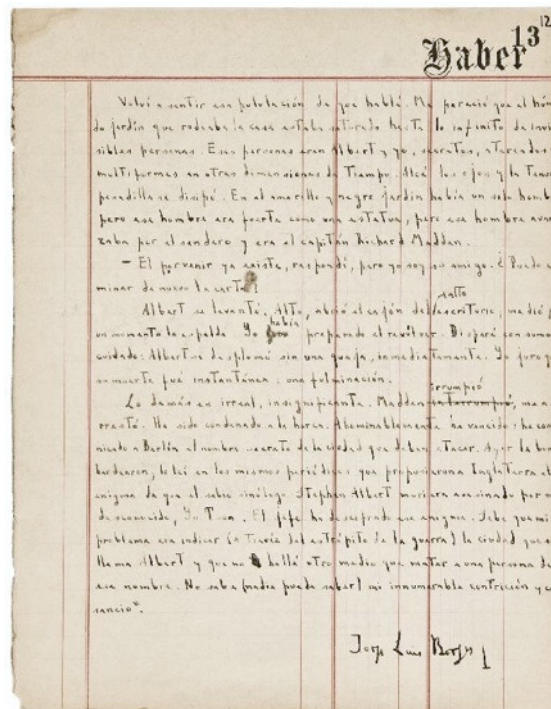 12
13
Haber
Volví a sentir esa pululación de que hablé. Me pareció que el húm
do jardín que rodeaba la casa estaba saturado hasta lo infinito de invi
sibles personas. Esas personas eran Albert y yo, secretos, atareados
multiformes en otras dimensiones de tiempo. Alcé los ojos y la tenue
pesadilla se disipó. En el amarillo y negro jardín había un solo homb
pero ese hombre era fuerte como una estatua, pero ese hombre avan
zaba por el sendero y era el capitán Richard Madden.
— El porvenir ya existe, respondí, pero yo soy su amigo. ¿Puedo e
minar de nuevo la carta?
Albert se levantó. Alto, abrió el cajón del alto escritorio; me dió p
un momento la espalda. Yo había preparado el revólver. Disparé con sumo
cuidado: Albert se desplomó sin una queja, inmediatamente. Yo juro q
su muerte fué instantánea: una fulminación.
Lo demás es irreal, insignificante. Madden interrumpió irrumpió, me a
rrestó. He sido condenado a la horca. Abominablemente he vencido: he com
nicado a Berlín el nombre secreto de la ciudad que deben atacar. Ayer la bom
bardearon; lo leí en los mismos periódicos que propusieron a Inglaterra el
enigma de que el sabio sinólogo Stephen Albert muriera asesinado por un
desconocido, Yu Tsun. El jefe ha descifrado ese enigma. Sabe que mi
problema era indicar (a través del estrépito de la guerra) la ciudad que s
llama Albert y que no hallé otro medio que matar a una persona de
ese nombre. No sabe (nadie puede saber) mi innumerable contrición y c
sancio".
Jorge Luis Borges